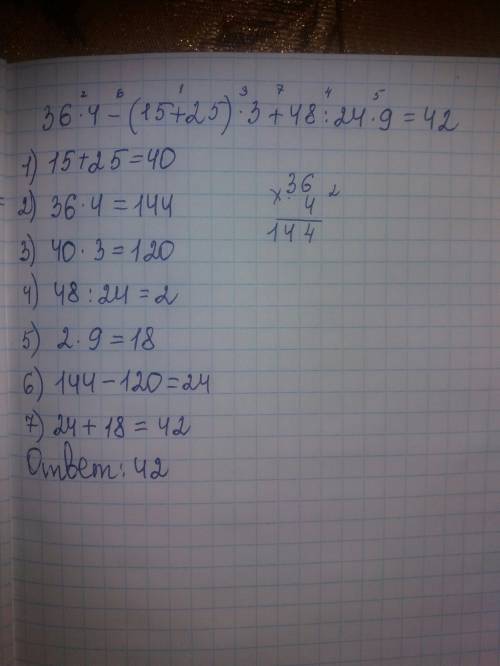 2 6 1 3 7 4 5
36·4-(15+25)·3+48:24·9=42
1) 15+25=40
2) 36·4=144
3) 40·3=120
4) 48:24=2
5) 2·9=18
6) 144-120=24
7) 24+18=42
Ответ: 42
36 2
× 4
144